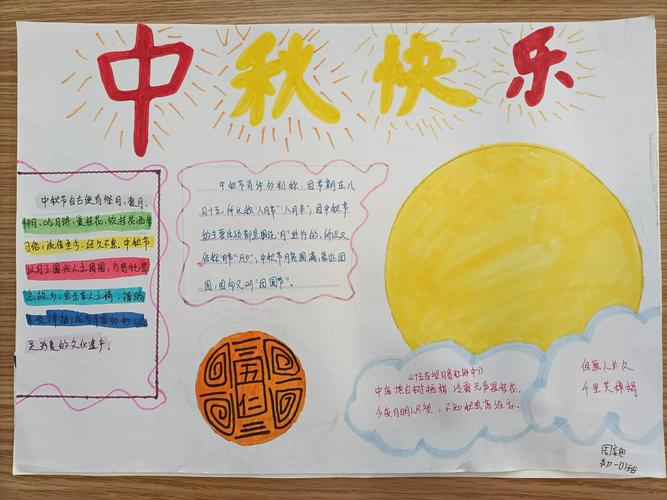 中秋快乐
中秋节自古便有祭月、赏月、
拜月、吃月饼、赏桂花、饮桂花酒等
习俗，流传至今，经久不息。中秋节
以月之圆兆人之团圆，为寄托思
念故乡，思念亲人之情，祈盼
丰收、幸福，成为丰富多彩、
弥足珍贵的文化遗产。
中秋节有许多别称：因节期在八
月十五，所以称"八月节""八月半"；因中秋节
的主要活动都是围绕"月"进行的，所以又
俗称"月节""月夕"；中秋节月亮圆满，象征团
圆，因而又叫"团圆节"。
五仁
《十五夜望月寄杜郎中》
中庭地白树栖鸦，冷露无声湿桂花。
今夜月明人尽望，不知秋思落谁家。
但愿人长久
千里共婵娟
初一